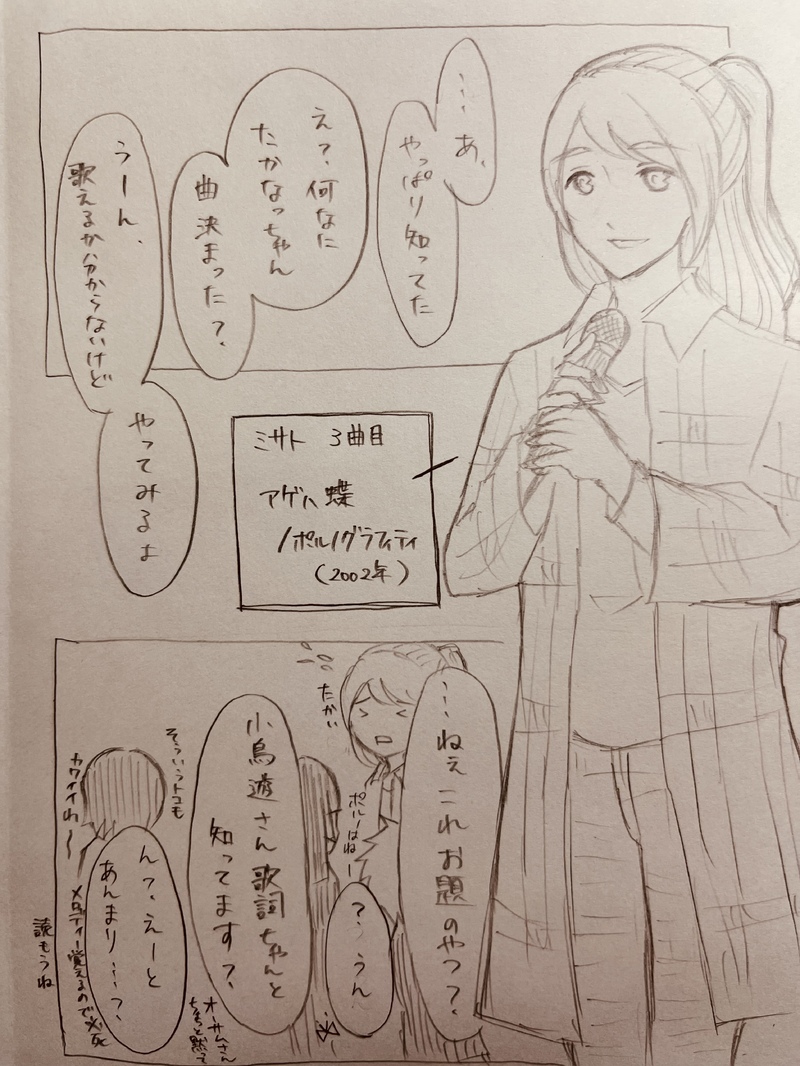 …あ、
やっぱり知ってた
え?、何なに
たかなっちゃん
曲決まった?、
うーん、
歌えるか分からないけど
やってみるよ
ミサト 3曲目
アゲハ蝶
/ポルノグラフィティ
(2002年)
…ねえこれお題のやつ?、
たかい
ポルノはねー
?、うん
小鳥遊さん歌詞ちゃんと
知ってます?、
オーサムさん
ちょっと黙って
そういうトコも
カワイイわ〜
ん?、えーと
あんまり…?、
メロディー覚えるので必死
読もうね